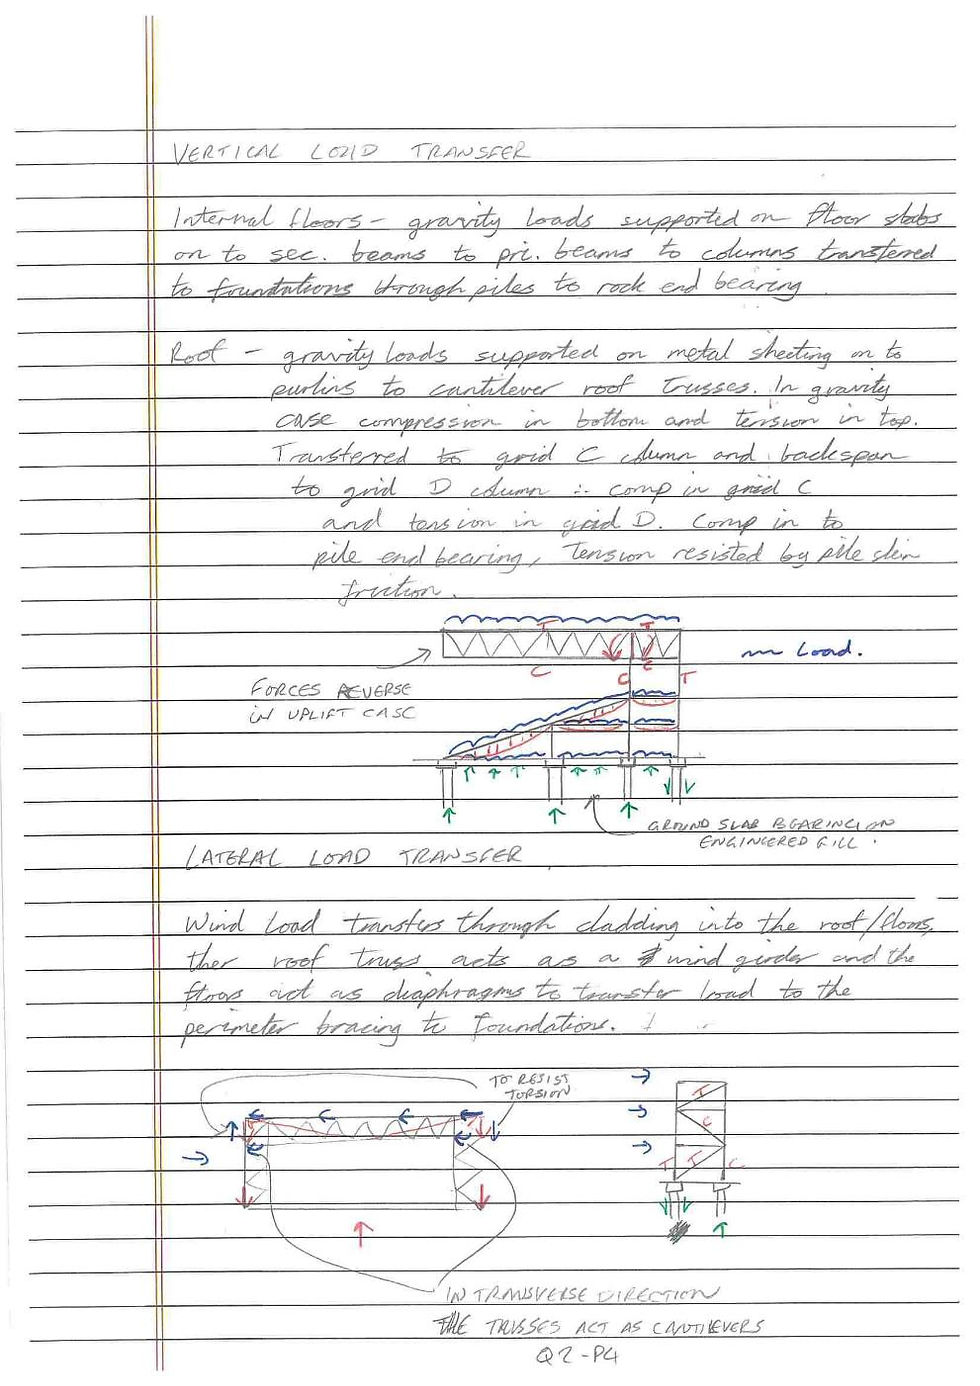 VERTICAL LOAD TRANSFER
Internal floors - gravity loads supported on floor slabs
on to sec. beams to pri. beams to columns transferred
to foundations through piles to rock end bearing.
Roof - gravity loads supported on metal sheeting on to
purlins to cantilever roof trusses. In gravity
case compression in bottom and tension in top.
Transferred to grid C column and backspan
to grid D column ∴ comp in grid C
and tension in grid D. Comp in to
pile end bearing, Tension resisted by pile skin
friction.
T T
C C
C T
Load.
FORCES REVERSE
IN UPLIFT CASE
GROUND SLAB BEARING ON
ENGINEERED FILL.
LATERAL LOAD TRANSFER
Wind Load transfers through cladding into the roof/floors,
ther roof truss acts as a wind girder and the
floors act as diaphragms to transfer load to the
perimeter bracing to foundations.
TO RESIST
TORSION
T
C
T T C
IN TRANSVERSE DIRECTION
THE TRUSSES ACT AS CANTILEVERS
Q2-P4